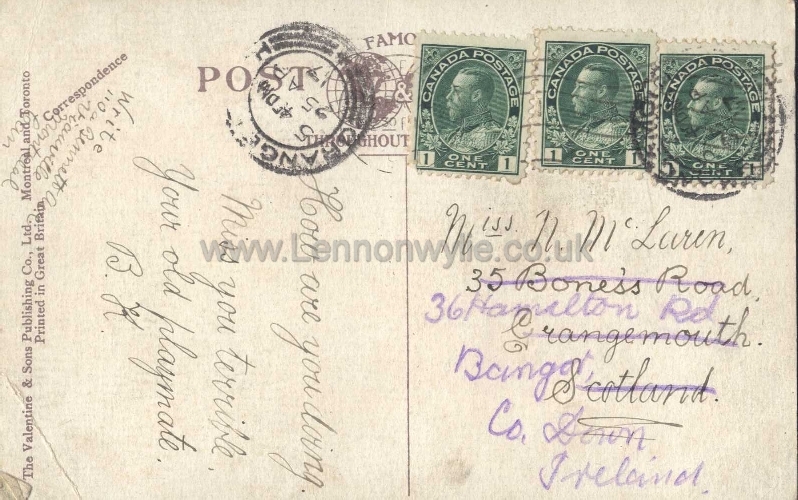 POST
FAMO
THROUGHOUT
CANADA POSTAGE
1 ONE CENT 1
CANADA POSTAGE
1 ONE CENT 1
CANADA POSTAGE
1 ONE CENT 1
5 PM
25 AP
17
Correspondence
Write
How are you doing.
Miss you terrible.
Your old playmate.
B. H.
Miss. N. McLaren,
35 Bone'ss Road,
36 Hamilton Rd
Grangemouth.
Bangor,
Scotland.
Co. Down
Ireland.
The Valentine & Sons Publishing Co., Ltd., Montreal and Toronto
Printed in Great Britain
www.Lennonwylie.co.uk